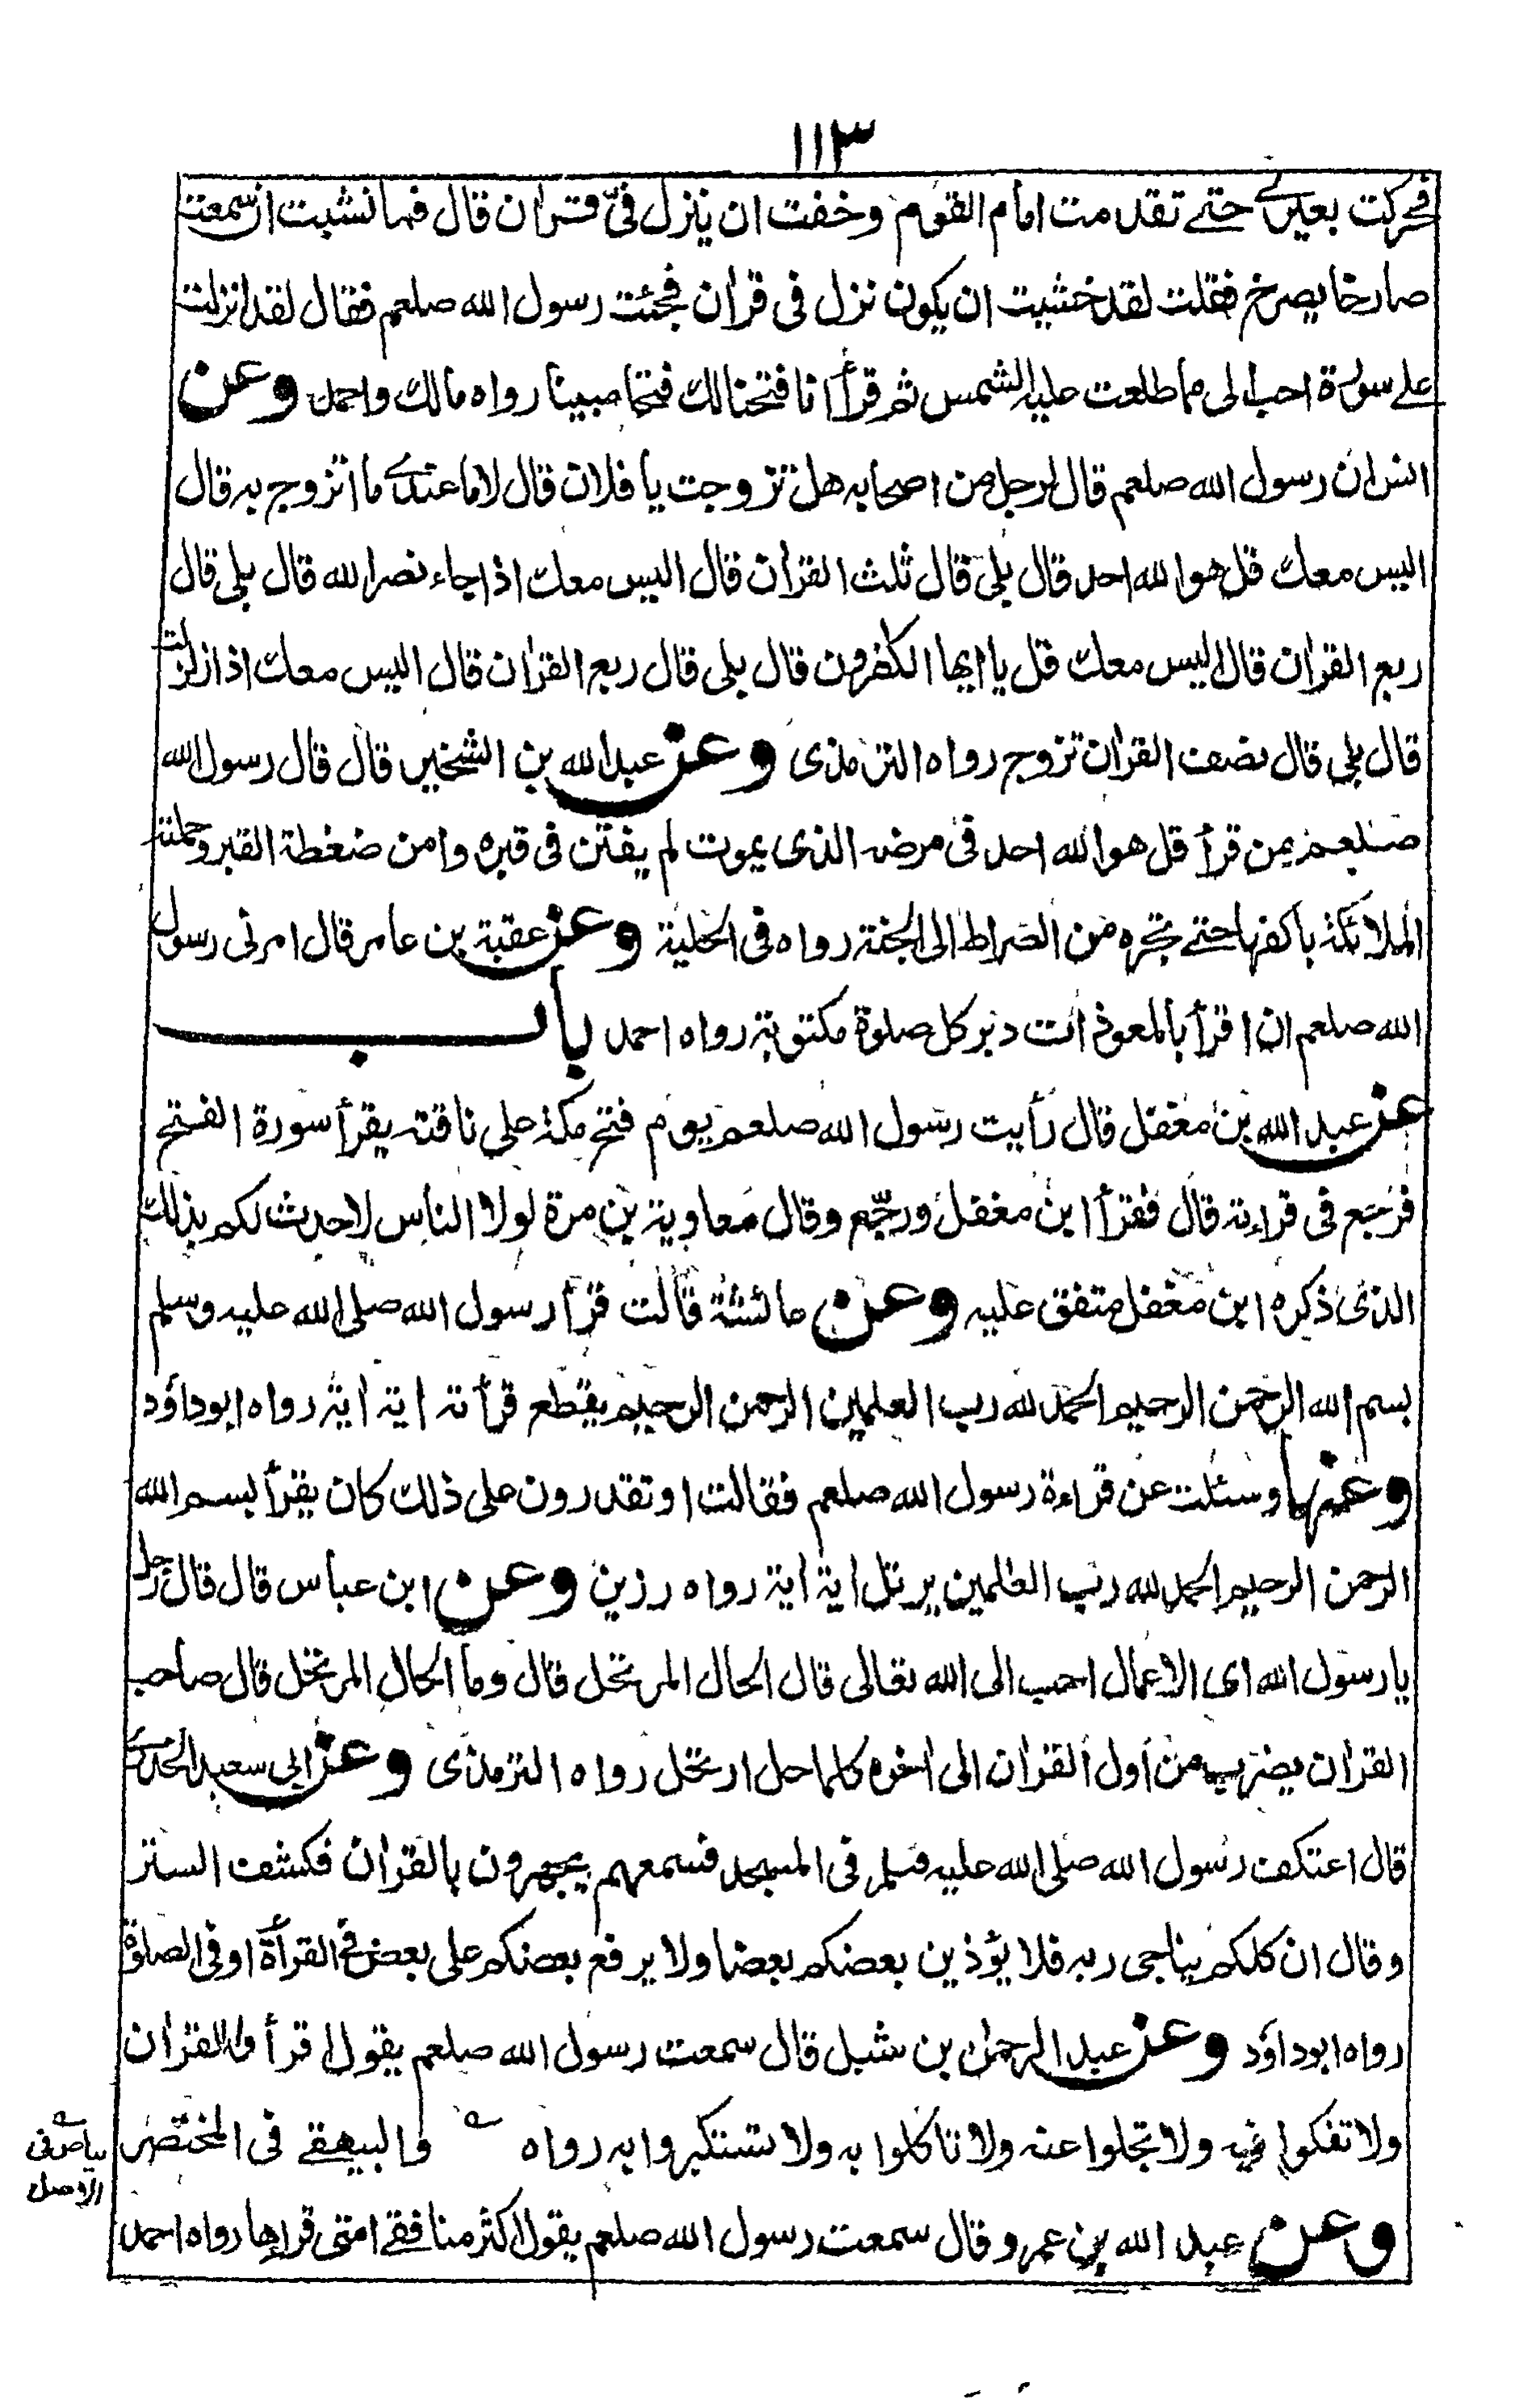 ١١٣
فحركت بعيرى حتے تقدمت امام القوم وخفت ان ينزل فىّ قران قال فما نشبت ان سمعت
صارخا يصرخ فقلت لقد خشيت ان يكون نزل فى قران فجئت رسول الله صلعم فقال لقد انزلت
علے سورة احب الى مما طلعت عليه الشمس ثم قرأ انا فتحنا لك فتحا مبينا رواه مالك واحمد وعن
انس ان رسول الله صلعم قال لرجل من اصحابه هل تزوجت يا فلان قال لا ما عندے ما اتزوج به قال
اليس معك قل هو الله احد قال بلى قال ثلث القران قال اليس معك اذا جاء نصر الله قال بلى قال
ربع القران قال اليس معك قل يا ايها الكفرون قال بلى قال ربع القران قال اليس معك اذا زلزلت
قال بلى قال نصف القران تزوج رواه الترمذى وعن عبد الله بن الشخير قال قال رسول الله
صلعم من قرأ قل هو الله احد فى مرضه الذى يموت لم يفتن فى قبره وامن ضغطة القبر وحملته
الملائكة باكفها حتے تجره من الصراط الى الجنة رواه فى الحلية وعن عقبة بن عامر قال امرنى رسول
الله صلعم ان اقرأ بالمعوذات دبر كل صلوة مكتوبة رواه احمد باب
عن عبد الله بن مغفل قال رأيت رسول الله صلعم يوم فتح مكة على ناقته يقرأ سورة الفتح
فرجع فى قراءته قال فقرأ ابن مغفل ورجّع وقال معاوية بن مرة لولا الناس لاحدث لكم بذلك
الذى ذكره ابن مغفل متفق عليه وعن عائشة قالت قرأ رسول الله صلى الله عليه وسلم
بسم الله الرحمن الرحيم الحمد لله رب العلمين الرحمن الرحيم يقطع قرأته اية اية رواه ابوداؤد
وعنها وسئلت عن قراءة رسول الله صلعم فقالت او تقدرون على ذلك كان يقرأ بسم الله
الرحمن الرحيم الحمد لله رب العالمين يرتل اية اية رواه رزين وعن ابن عباس قال قال رجل
يا رسول الله اى الاعمال احب الى الله تعالى قال الحال المرتحل قال وما الحال المرتحل قال صاحب
القران يضرب من أول القران الى اخره كلما حل ارتحل رواه الترمذى وعن ابى سعيد الخدرے
قال اعتكف رسول الله صلى الله عليه وسلم فى المسجد فسمعهم يجهرون بالقران فكشف الستر
وقال ان كلكم يناجى ربه فلا يؤذين بعضكم بعضا ولا يرفع بعضكم على بعض فى القرأة او فى الصلوة
رواه ابوداؤد وعن عبد الرحمن بن شبل قال سمعت رسول الله صلعم يقول اقرأوا القران
ولا تفكوا فيه ولا تجلوا عنه ولا تاكلوا به ولا تستكبروا به رواه والبيهقے فى المختصر
بياض فى
الاصل
وعن عبد الله بن عمرو قال سمعت رسول الله صلعم يقول اكثر منافقے امتى قراها رواه احمد